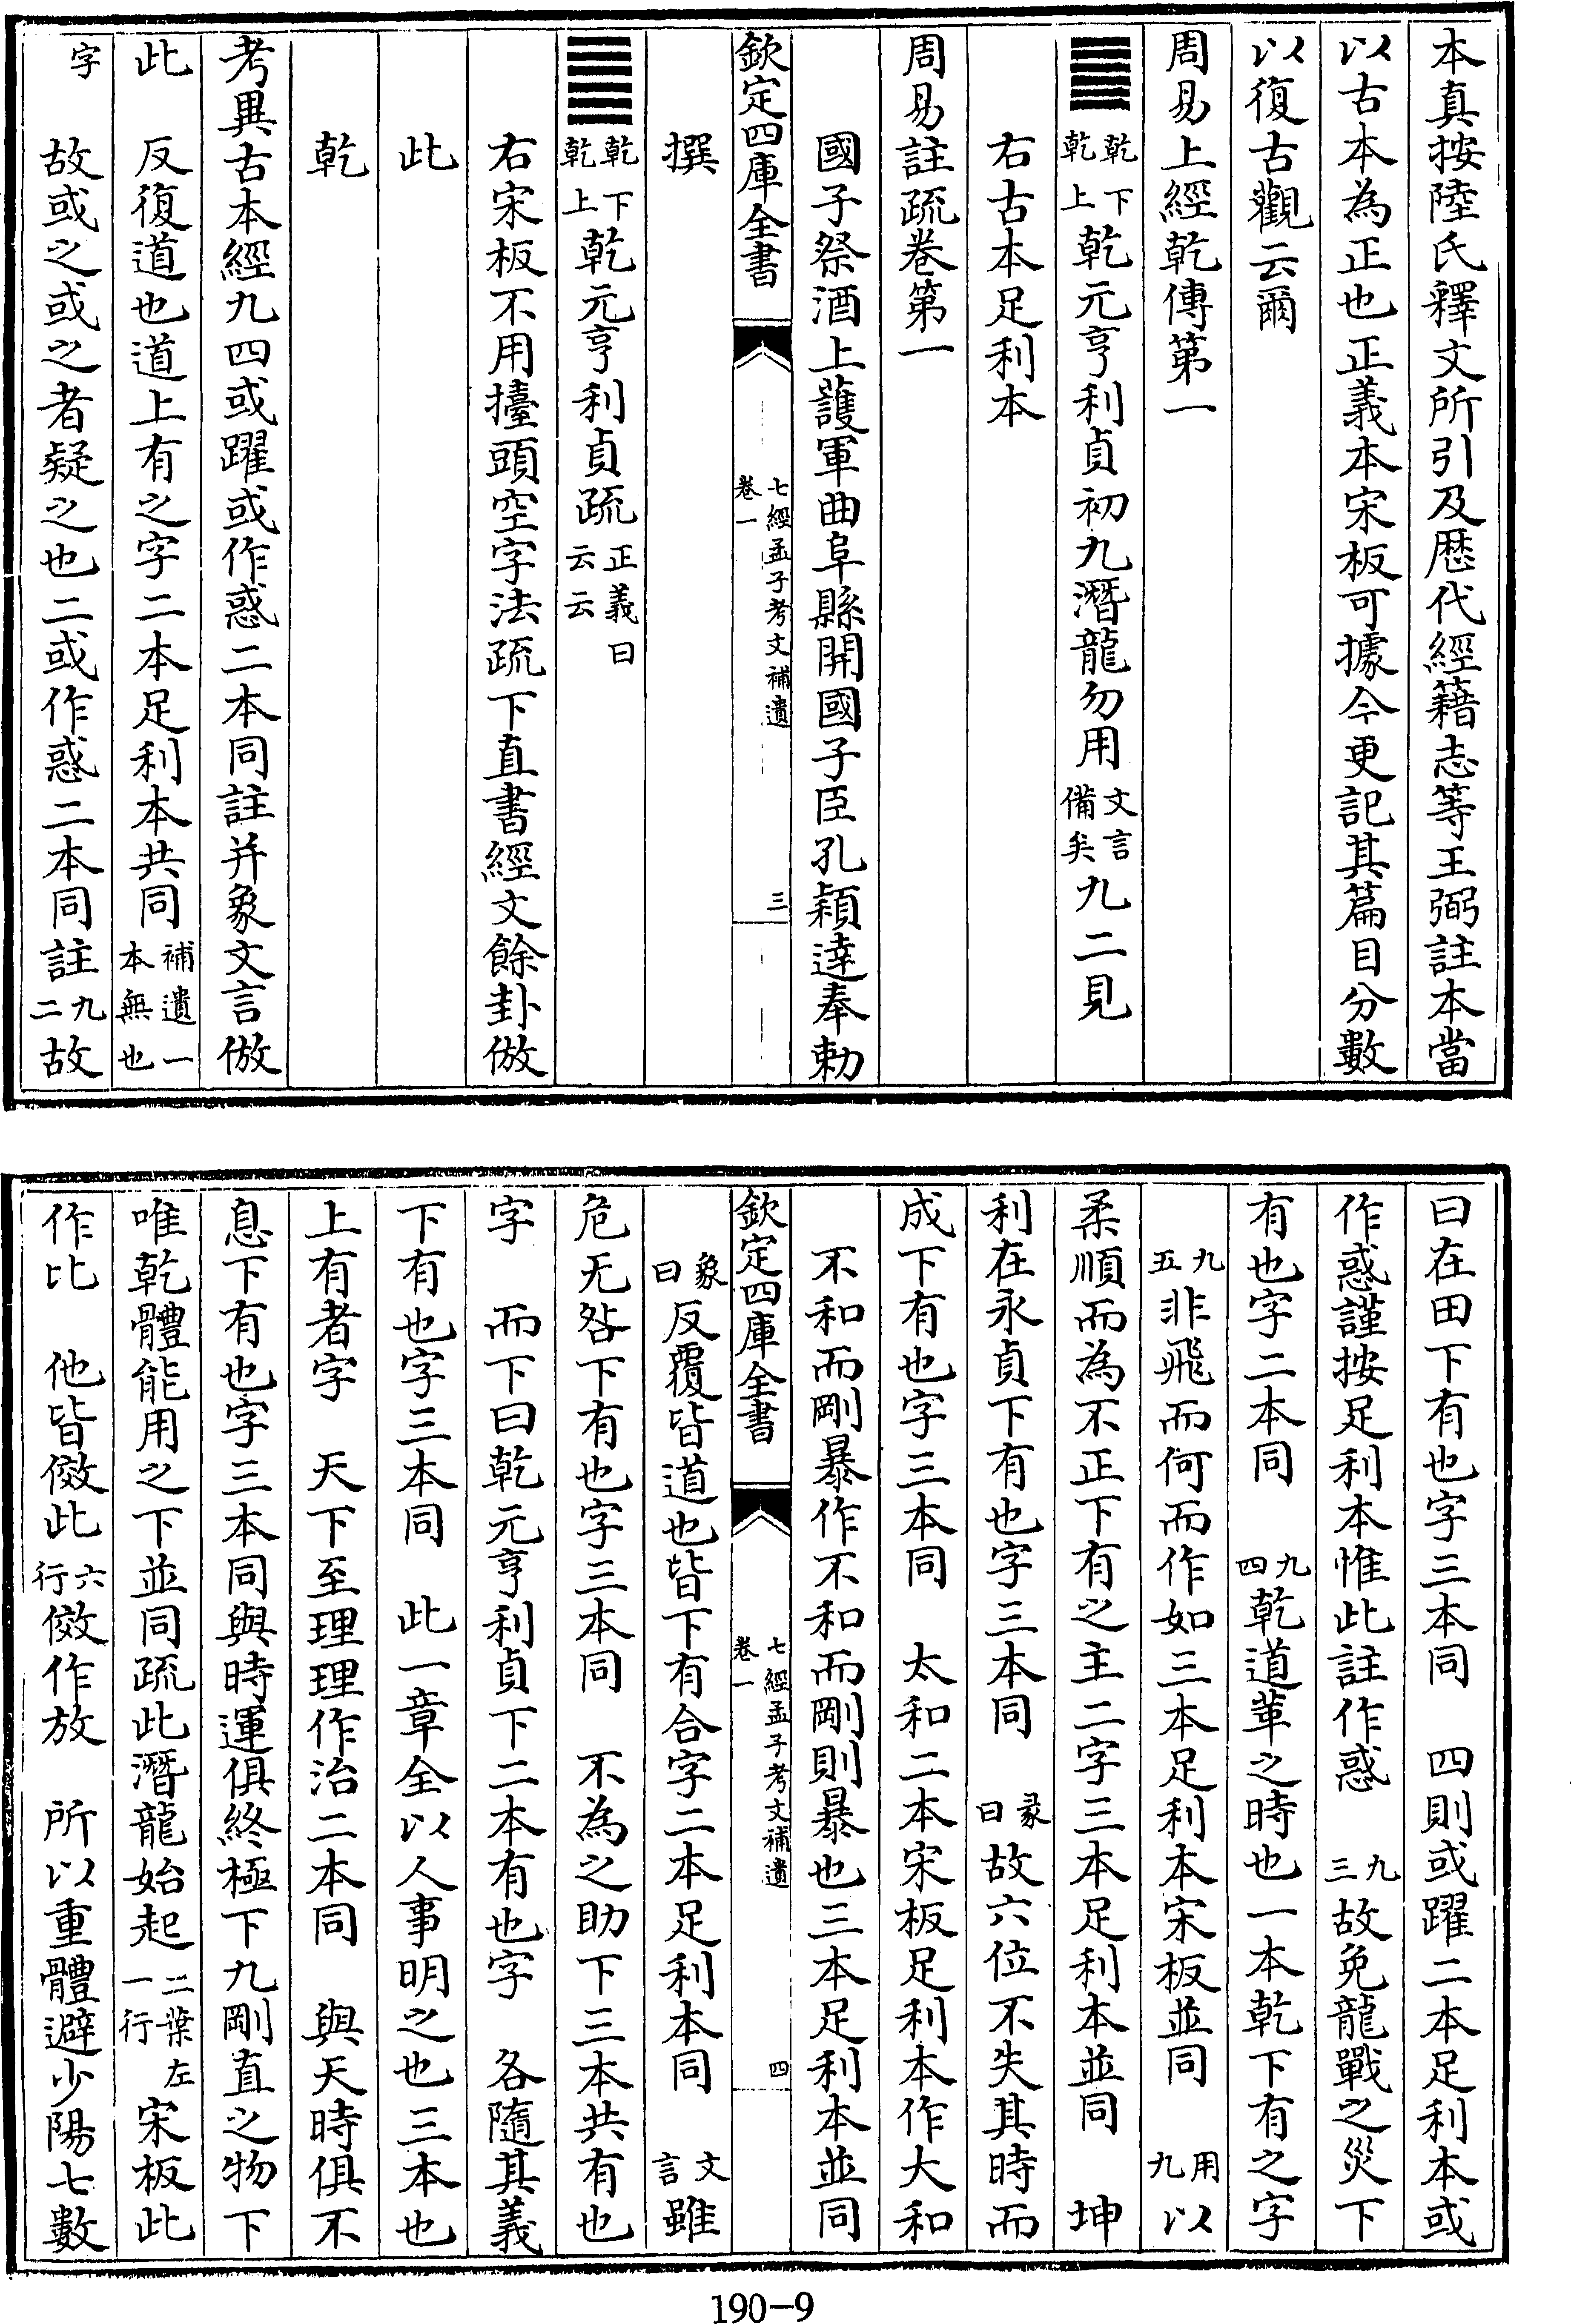 本真按陸氏釋文所引及歷代經籍志等王弼註本當
以古本為正也正義本宋板可據今更記其篇目分數
以復古觀云爾
周易上經乾傳第一
䷀乾下乾上乾元亨利貞初九潛龍勿用文言備矣九二見
右古本足利本
周易註疏卷第一
國子祭酒上護軍曲阜縣開國子臣孔穎達奉勅
欽定四庫全書 七經孟子考文補遺 卷一 三
撰
䷀乾下乾上乾元亨利貞疏正義曰云云
右宋板不用擡頭空字法疏下直書經文餘卦倣
此
乾
考異古本經九四或躍或作惑二本同註并象文言倣
此 反復道也道上有之字二本足利本共同補遺一本無也
字 故或之或之者疑之也二或作惑二本同註九二故
曰在田下有也字三本同 四則或躍二本足利本或
作惑謹按足利本惟此註作惑 九三故免龍戰之災下
有也字二本同 九四乾道革之時也一本乾下有之字
九五非飛而何而作如三本足利本宋板並同 用九以
柔順而為不正下有之主二字三本足利本並同 坤
利在永貞下有也字三本同 彖曰故六位不失其時而
成下有也字三本同 太和二本宋板足利本作大和
不和而剛暴作不和而剛則暴也三本足利本並同
欽定四庫全書 七經孟子考文補遺 卷一 四
象曰反覆皆道也皆下有合字二本足利本同 文言雖
危无咎下有也字三本同 不為之助下三本共有也
字 而下曰乾元亨利貞下二本有也字 各隨其義
下有也字三本同 此一章全以人事明之也三本也
上有者字 天下至理理作治二本同 與天時俱不
息下有也字三本同與時運俱終極下九剛直之物下
唯乾體能用之下並同疏此潛龍始起二葉左一行 宋板此
作比 他皆倣此六行倣作放 所以重體避少陽七數